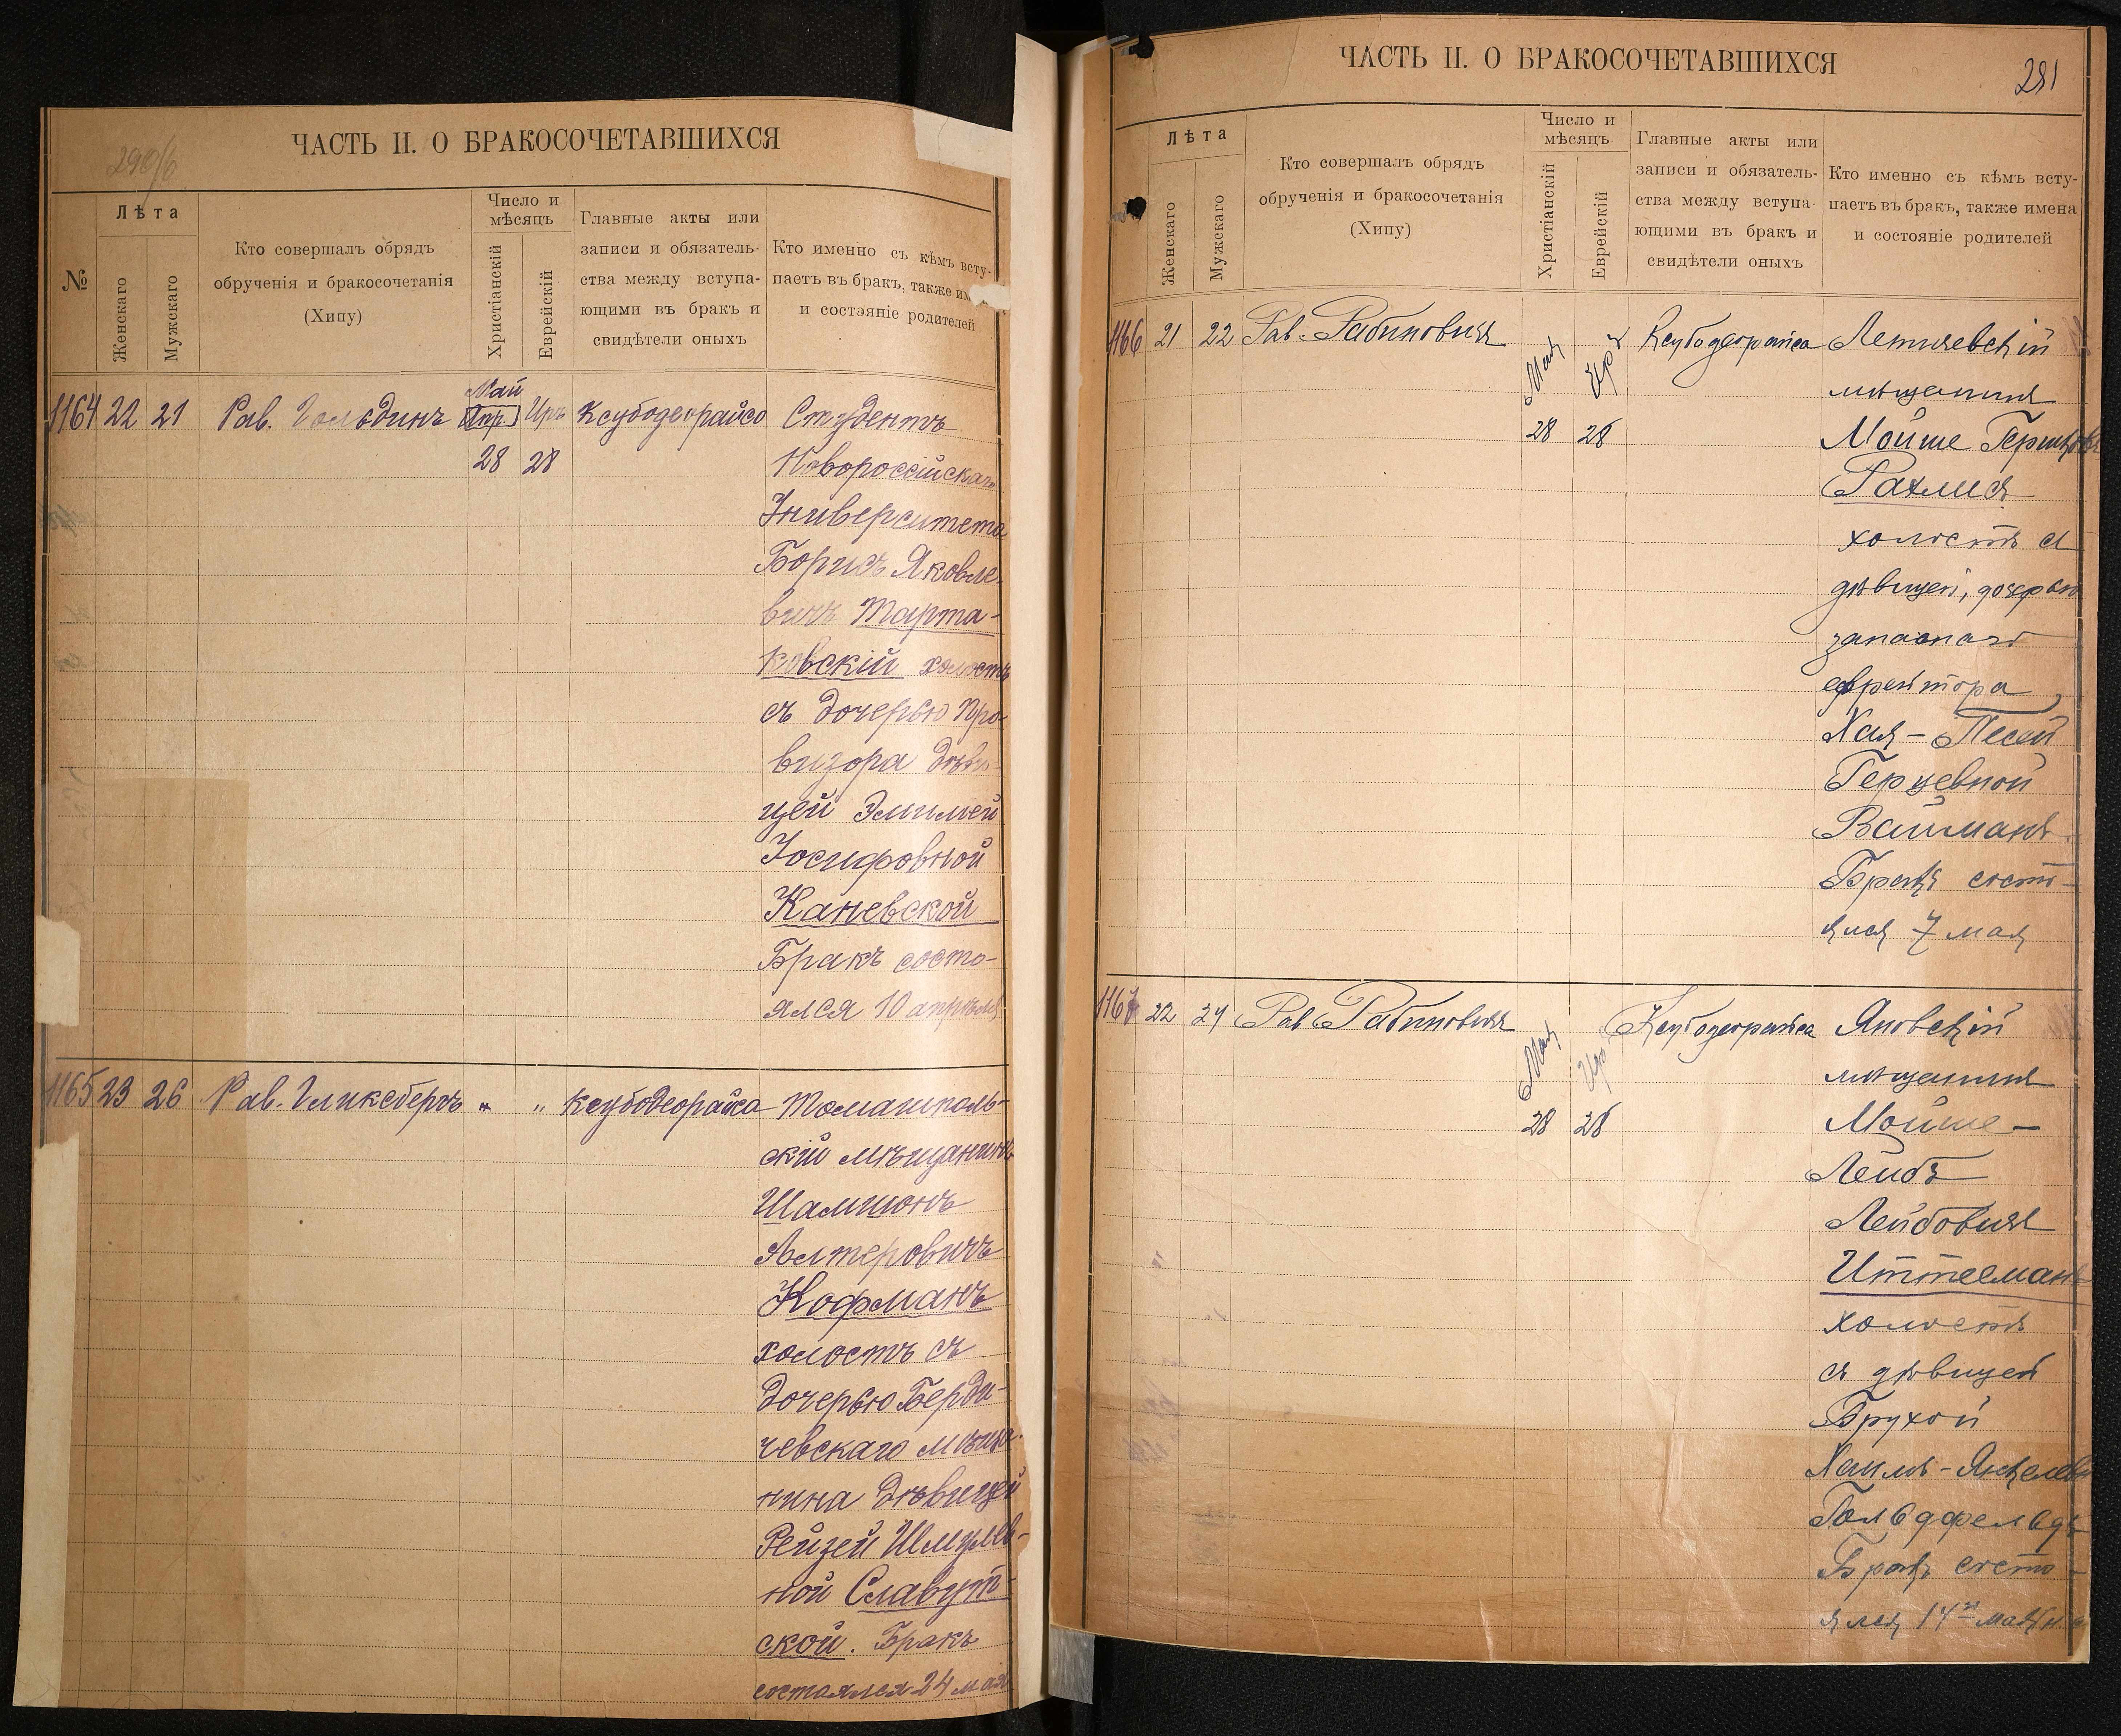 290/б
ЧАСТЬ II. О БРАКОСОЧЕТАВШИХСЯ
№
Лѣта
Женскаго
Мужскаго
Кто совершалъ обрядъ
обрученія и бракосочетанія
(Хипу)
Число и
мѣсяцъ
Христіанскій
Еврейскій
Главные акты или
записи и обязатель-
ства между вступа-
ющими въ бракъ и
свидѣтели оныхъ
Кто именно съ кѣмъ всту-
паетъ въ бракъ, также им
и состояніе родителей
Май
1164 22 21 Рав. Гольдинъ Апр. Иръ Ксубодеорайсо Студентъ
28 28 Новороссійскаг.
Университета
Борисъ Яковле-
вичъ Тарта-
ковскій холостъ
съ дочерью про-
визора дѣви-
цей Эмиліей
Іосифовной
Каневской
Бракъ состо-
ялся 10 апрѣля
1165 23 26 Рав. Гликсбергъ " " Ксубодеорайса Томашполь-
скій мѣщанинъ
Шамшонъ
Алтеровичъ
Кофманъ
холостъ съ
дочерью Берди-
чевскаго мѣща-
нина дѣвицей
Рейзей Шмулев-
ной Славут-
ской. Бракъ
состоялся 24 мая
ЧАСТЬ II. О БРАКОСОЧЕТАВШИХСЯ
291
Лѣта
Женскаго
Мужскаго
Кто совершалъ обрядъ
обрученія и бракосочетанія
(Хипу)
Число и
мѣсяцъ
Христіанскій
Еврейскій
Главные акты или
записи и обязатель-
ства между вступа-
ющими въ бракъ и
свидѣтели оныхъ
Кто именно съ кѣмъ всту-
паетъ въ бракъ, также имена
и состояніе родителей
1166 21 22 Рав. Рабиновичъ Мая Иръ Ксубодеорайса Летичевскій
мѣщанинъ
28 28 Мойше Гершков
Рахлисъ
холостъ съ
дѣвицей, дочерью
запаснаго
ефрейтора
Хая-Песей
Герцевной
Вайманъ.
Бракъ состо-
ялся 7 мая
1167 22 24 Рав Рабиновичъ Мая Иръ Ксубодеорайса Яновскій
мѣщанинъ
28 28 Мойше-
Лейбъ
Лейбовичъ
Иттельманъ
холостъ
съ дѣвицей
Брухой
Хаимъ-Янкелев
Гольдфельдъ
Бракъ состо-
ялся 14го мая